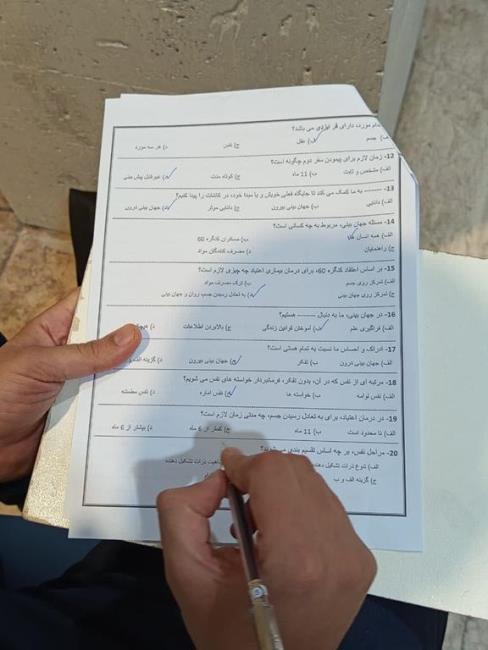 مورد، دارای فر ایزدی می باشد؟
الف) جسم ب) عقل ج) نفس د) هر سه مورد
12- زمان لازم برای پیمودن سفر دوم چگونه است؟
الف) مشخص و ثابت ب) 11 ماه ج) کوتاه مدت د) غیرقابل پیش بینی
13- -------- به ما کمک می کند تا جایگاه فعلی خویش و یا مبدا خود، در کائنات را پیدا کنیم؟
الف) دانایی ب) جهان بینی بیرون ج) دانایی موثر د) جهان بینی درون
14- مسئله جهان بینی، مربوط به چه کسانی است؟
الف) همه انسان ها ب) مسافران کنگره 60
ج) راهنمایان د) مصرف کنندگان مواد
15- بر اساس اعتقاد کنگره 60، برای درمان بیماری اعتیاد چه چیزی لازم است؟
الف) تمرکز روی جسم ب) ترک مصرف مواد
ج) تمرکز روی جهان بینی د) به تعادل رسیدن جسم، روان و جهان بینی
16- در جهان بینی، ما به دنبال -------- هستیم؟
الف) فراگیری علم ب) آموختن قوانین زندگی ج) بالابردن اطلاعات د)
17- ادراک و احساس ما نسبت به تمام هستی است؟
الف) جهان بینی درون ب) تفکر ج) جهان بینی بیرون د) گزینه الف
18- مرتبه ای از نفس که در آن، بدون تفکر، فرمانبردار خواسته های نفس می شویم؟
الف) نفس لوامه ب) خواسته ها ج) نفس اماره د) نفس مطمئنه
19- در درمان اعتیاد، برای به تعادل رسیدن جسم، چه مدتی زمان لازم است؟
الف) نا محدود است ب) 11 ماه ج) کمتر از 6 ماه د) بیشتر از 6 ماه
20- مراحل نفس، بر چه اساس تقسیم بندی می شوند؟
الف) تنوع ذرات تشکیل دهنده ذرات تشکیل دهنده
ج) گزینه الف و ب